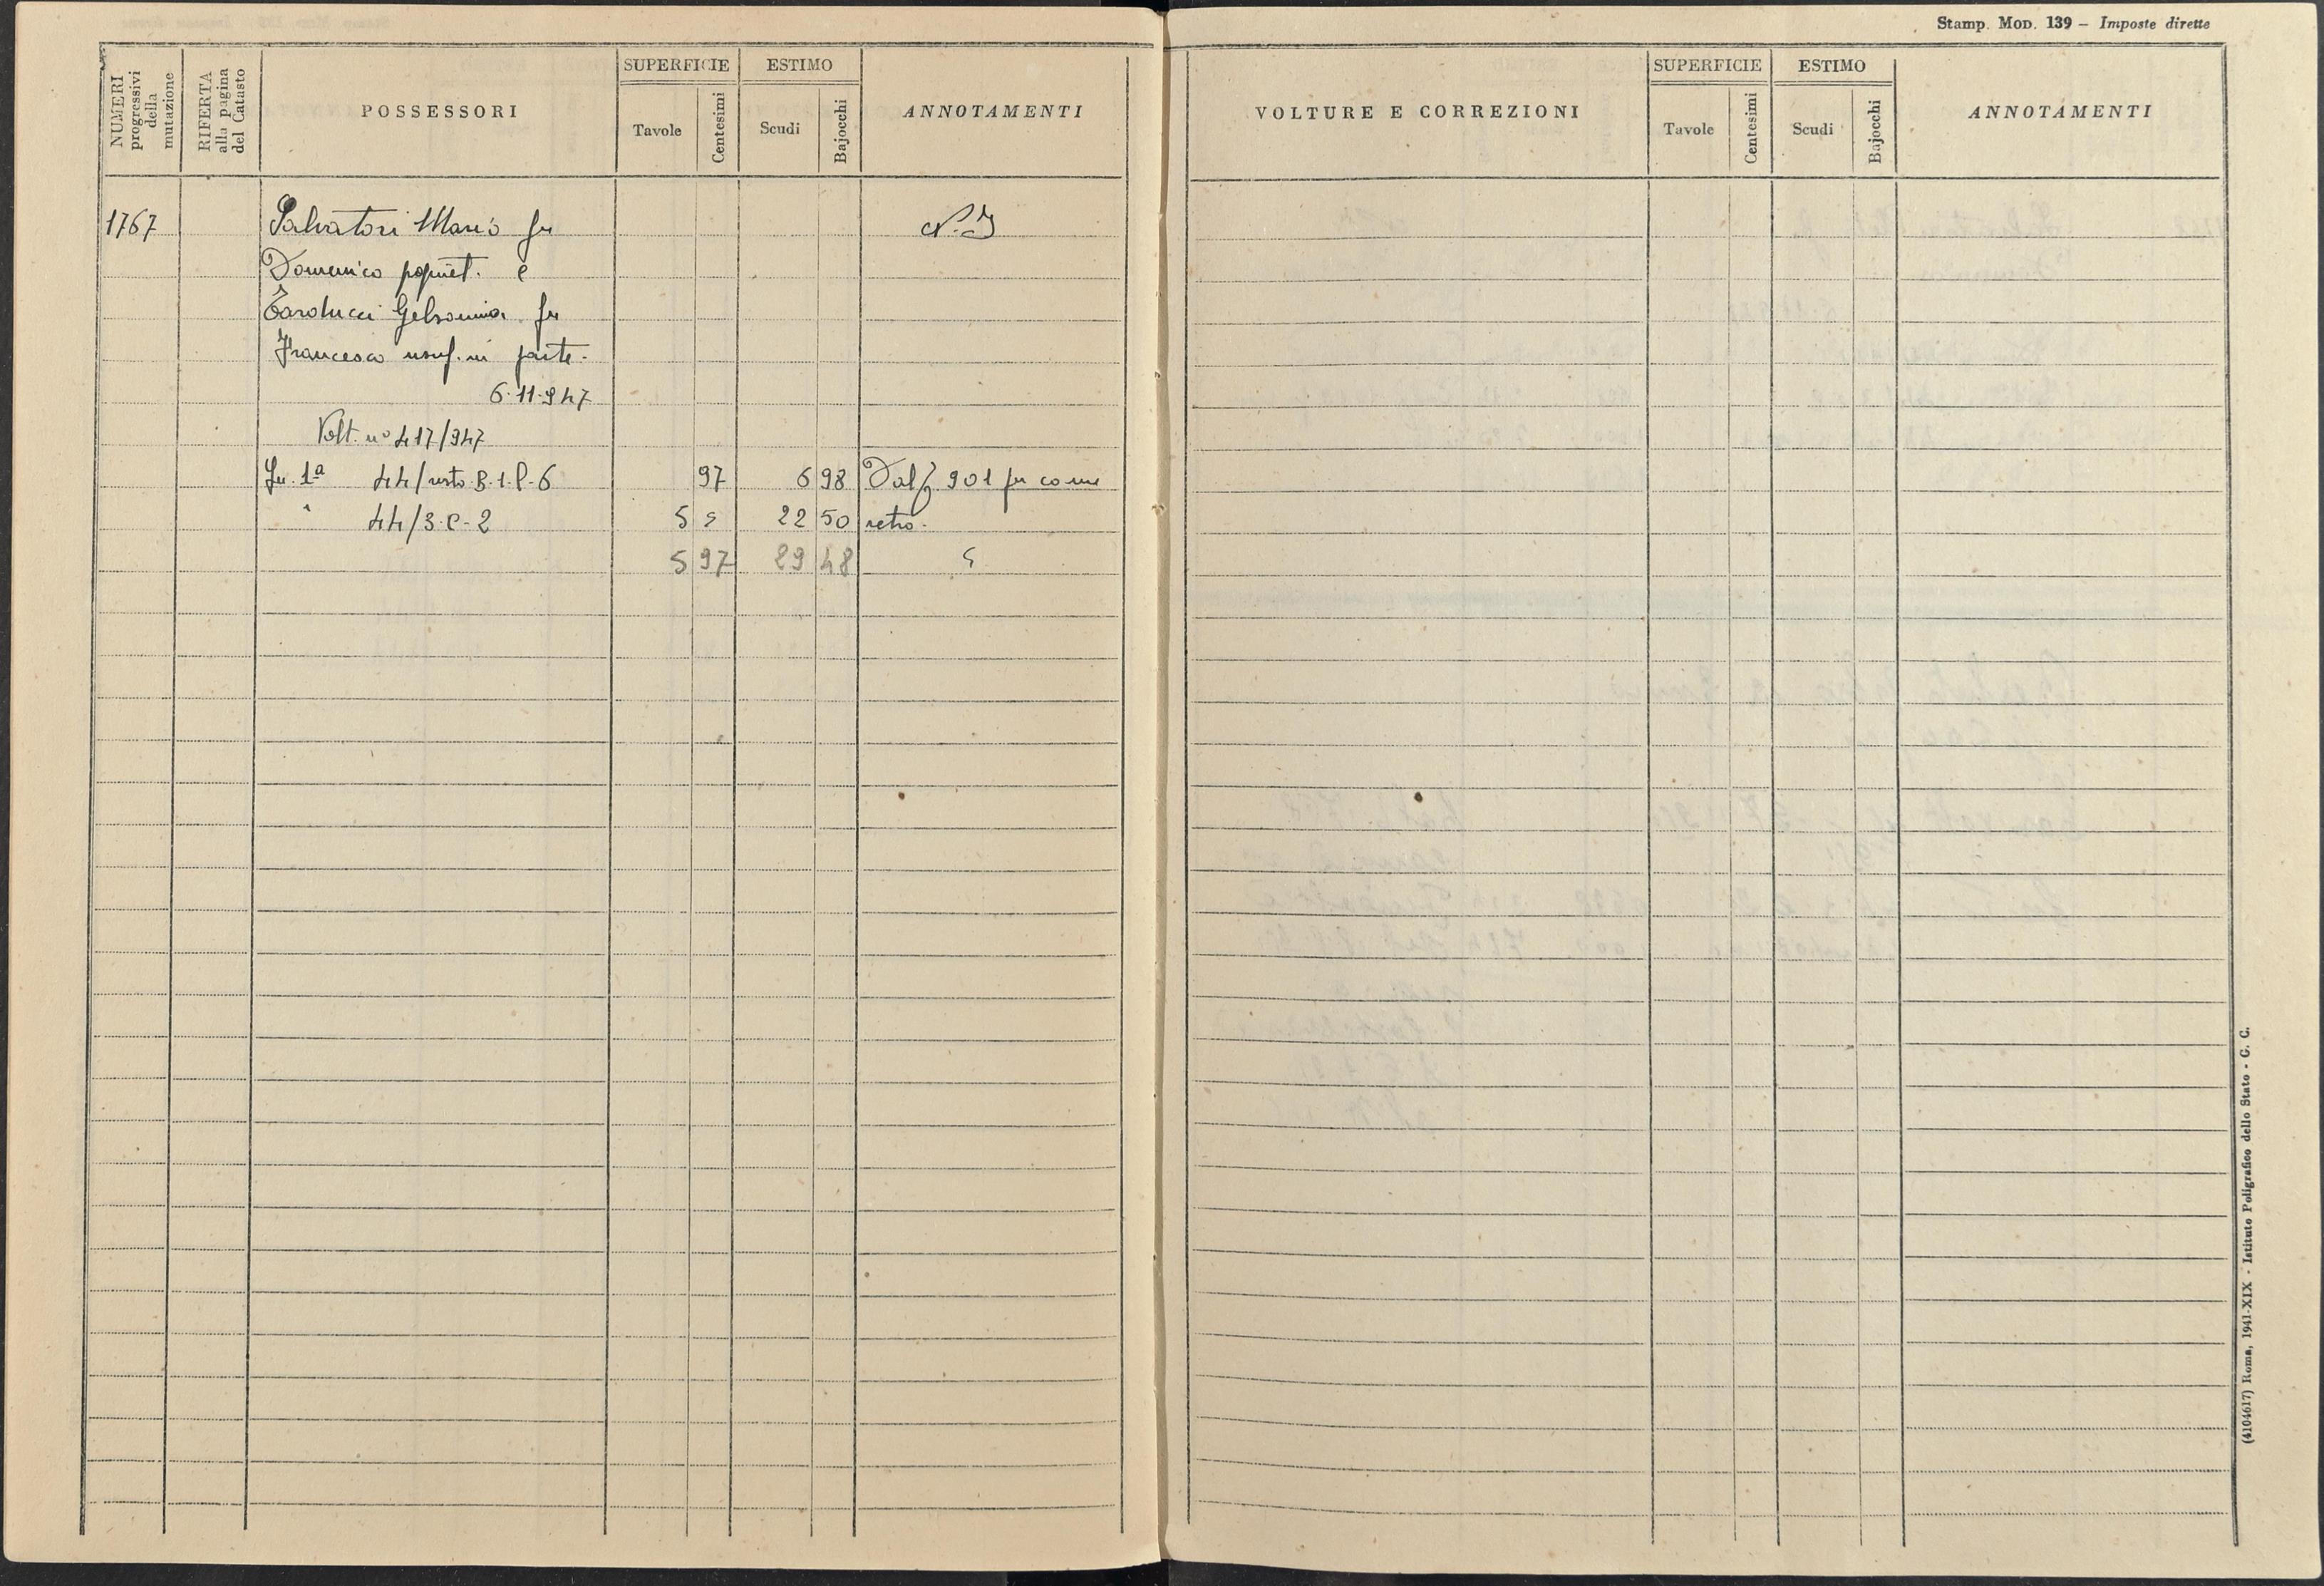 Stamp. Mod. 139 – Imposte dirette
NUMERI progressivi della mutazione
RIFERTA alla pagina del Catasto
POSSESSORI
SUPERFICIE
Tavole
Centesimi
ESTIMO
Scudi
Bajocchi
ANNOTAMENTI
VOLTURE E CORREZIONI
SUPERFICIE
Tavole
Centesimi
ESTIMO
Scudi
Bajocchi
ANNOTAMENTI
1767 Salvatori Mario fu
Domenico propriet. e
Tarducci Gelsomina fu
Francesco usuf. in parte.
6.11.947
Volt. nº 417/947
1ª 44/resto.B.1.P.6 97 6 98 Dal 901 per come
" 44/3.C-2 5 22 50 retro.
5 97 29 48
(4104617) Roma, 1941-XIX - Istituto Poligrafico dello Stato - G. C.